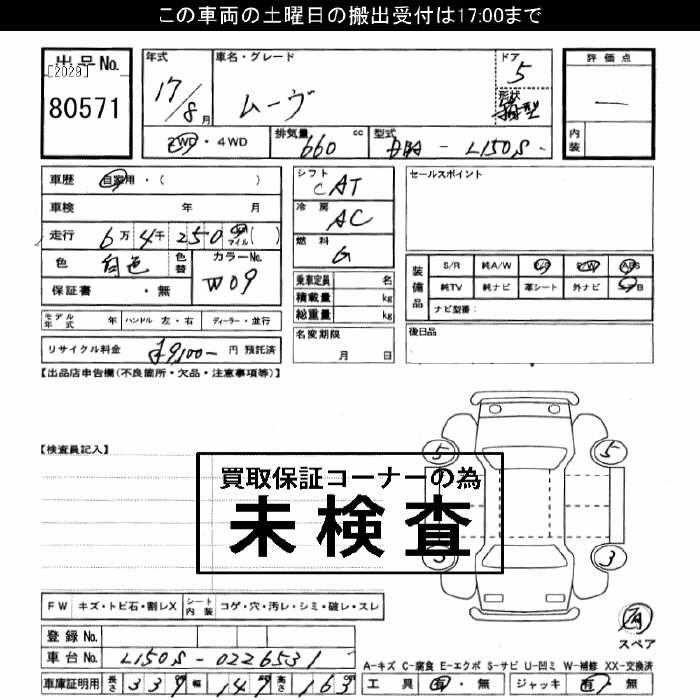 この車両の土曜日の搬出受付は17:00まで
出品No.
[2029]
80571
年式
17/8 月
車名・グレード
ムーヴ
ドア
5
形状
箱型
評価点
―
内装
2WD・4WD
排気量
660 cc
型式
DBA - L150S -
車歴 自家用・( )
車検 年 月
走行 6万4千250 km マイル( )
色 白色 色替 カラーNo. W09
保証書 ・無
シフト CAT
冷房 AC
燃料 G
乗車定員 名
積載量 kg
総重量 kg
セールスポイント
装備品
S/R 純A/W P/S P/W ABS
純TV 純ナビ 革シート 外ナビ エアB
ナビ型番:
モデル年式 年 ハンドル 左・右 ディーラー・並行
名変期限
月 日
後日品
リサイクル料金 ¥9,100- 円 預託済
【出品店申告欄(不良箇所・欠品・注意事項等)】
【検査員記入】
買取保証コーナーの為
未検査
5
5
3
3
FW キズ・トビ石・割レX シート内装 コゲ・穴・汚レ・シミ・破レ・スレ
有
スペア
登録No.
車台No. L150S-0226531
A-キズ C-腐食 E-エクボ S-サビ U-凹ミ W-補修 XX-交換済
車庫証明用 長さ 339 幅 147 高さ 163
工具 有・無 ジャッキ 有・無